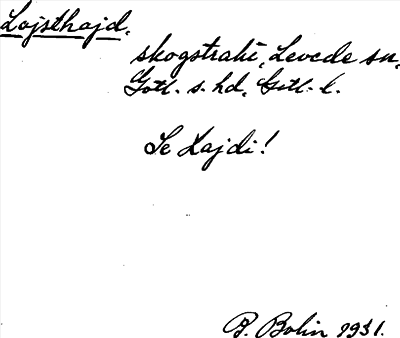 Lojsthajd.
skogstrakt, Levede sn,
Gotl. s. hd, Gotl. l.
Se Hajdi!
B. Bolin 1931.